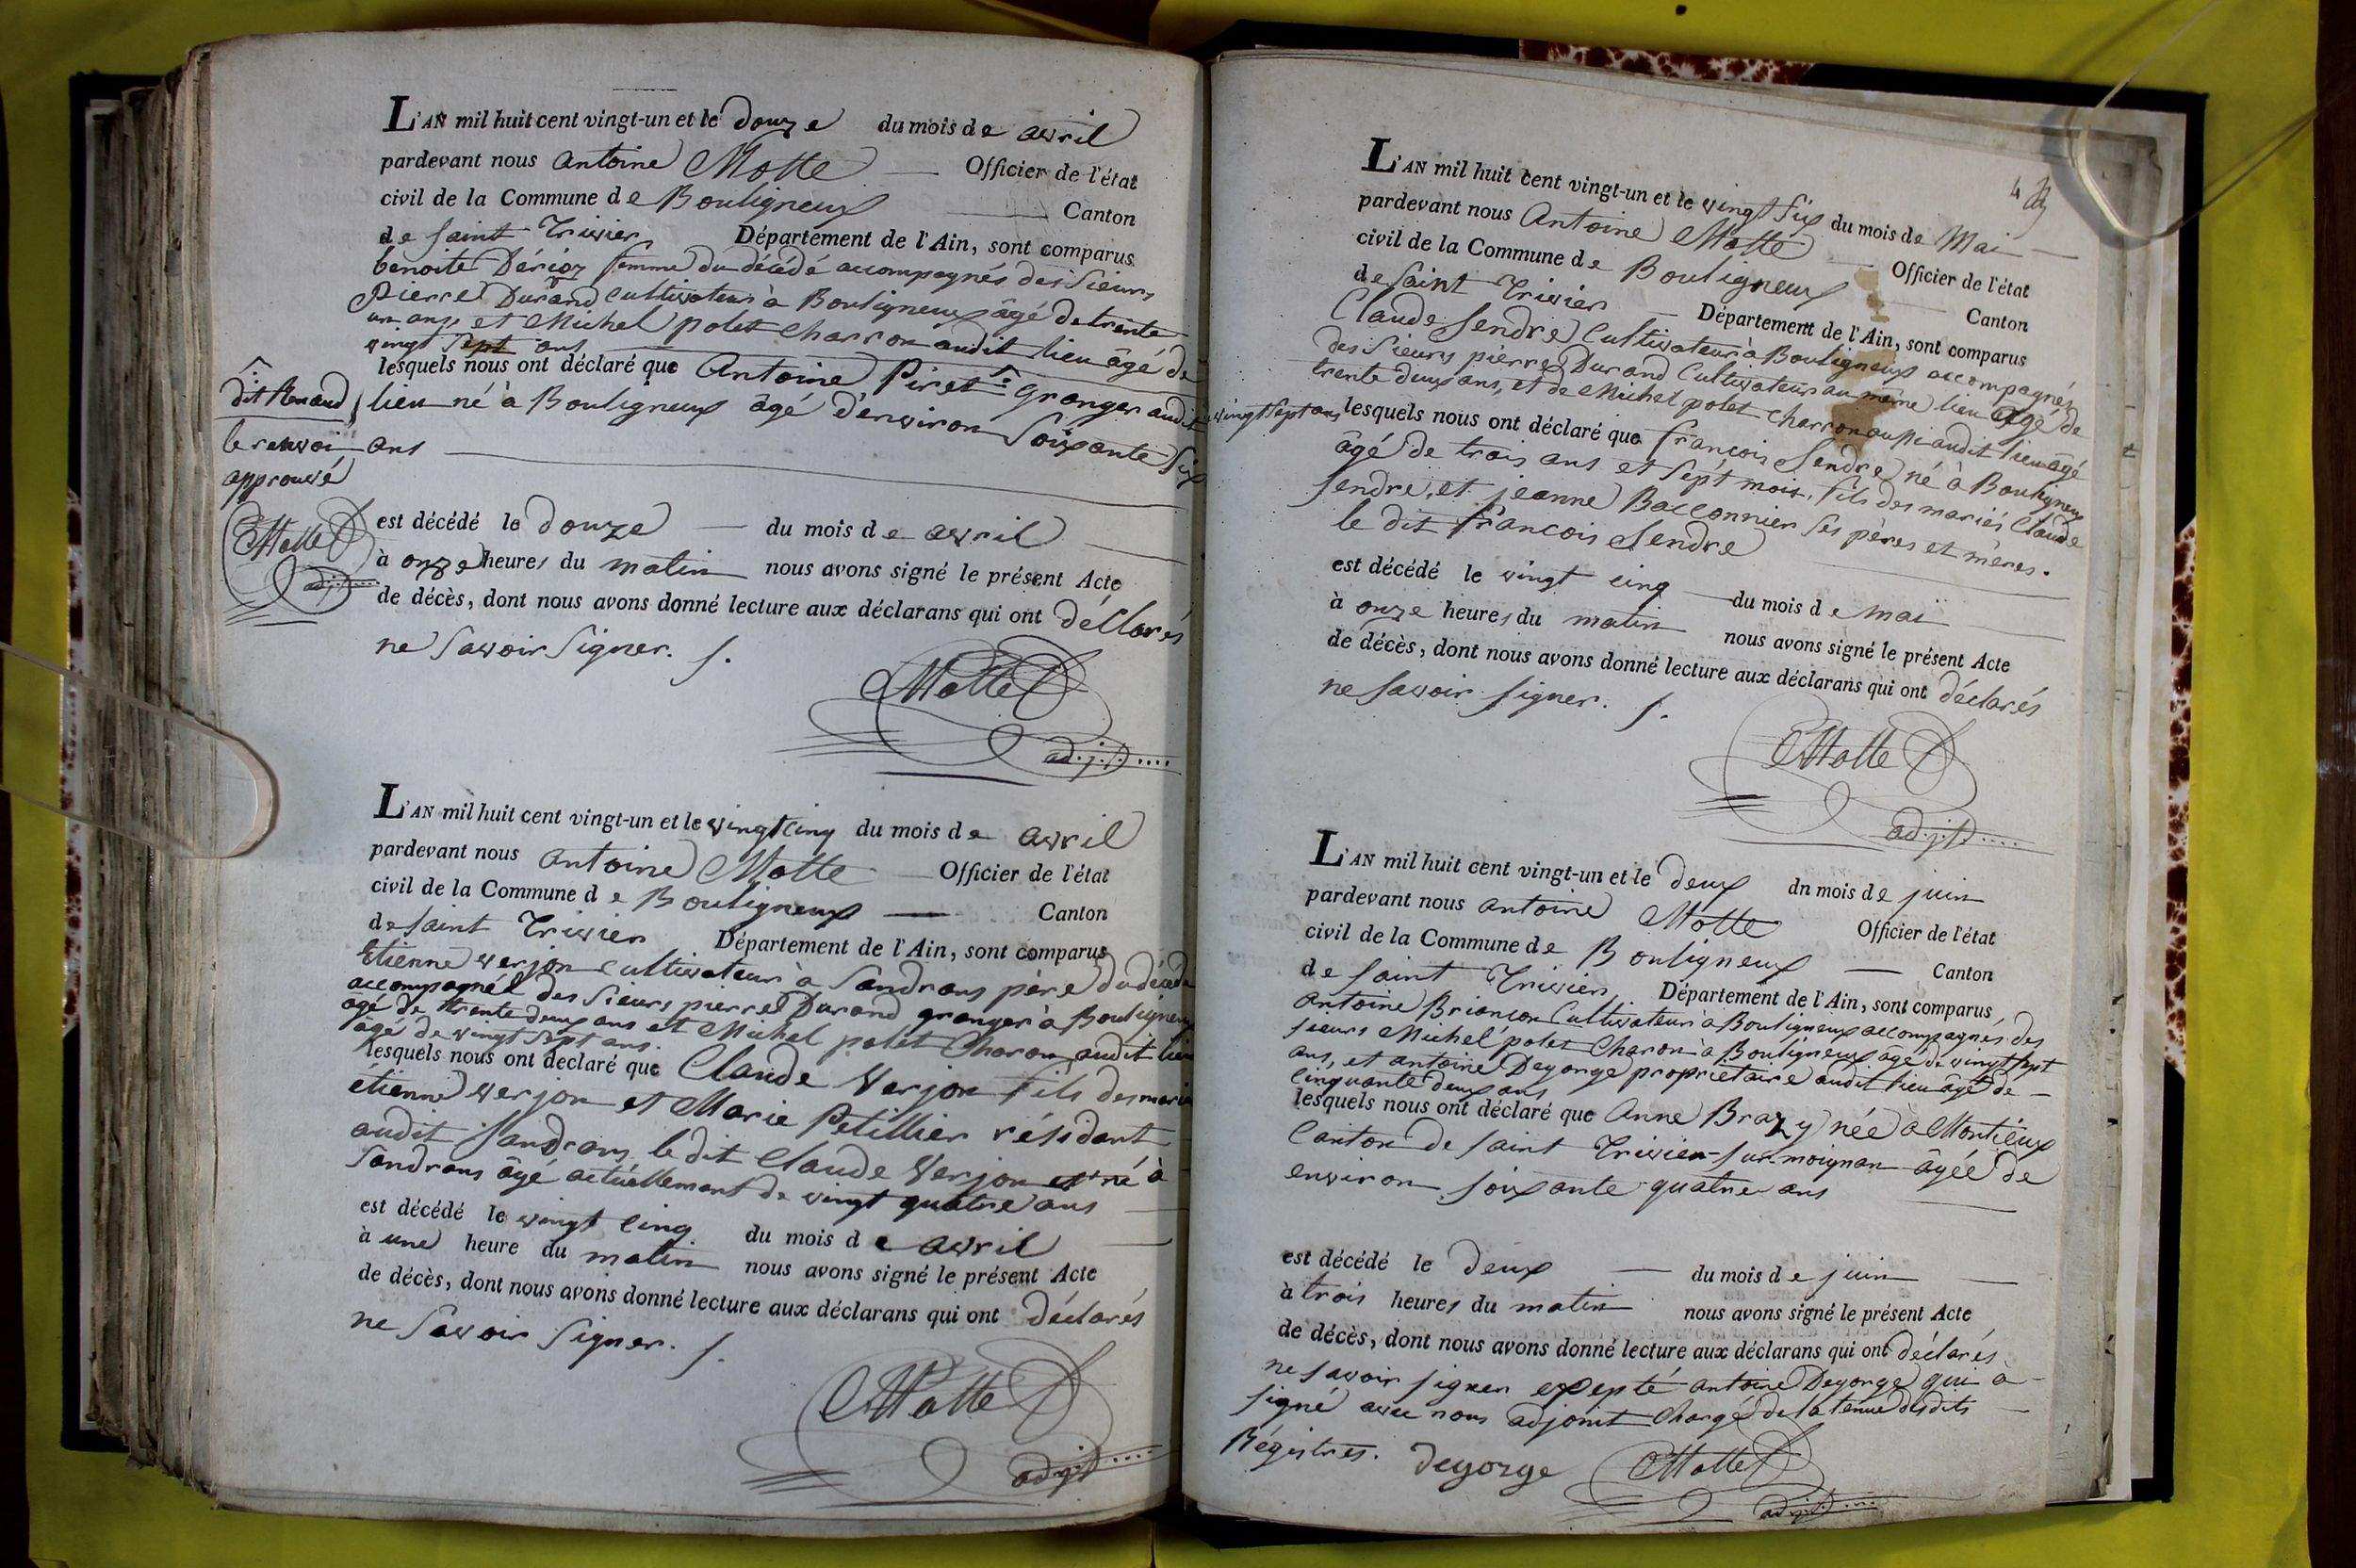 L'AN mil huit cent vingt-un et le douze du mois de avril
pardevant nous antoine Motte Officier de l'état
civil de la Commune de Bouligneux Canton
de saint Trivier Département de l'Ain, sont comparus
benoite femme du décédé accompagnés des Sieurs
Pierre Durand Cultivateur à Bouligneux âgé de trente
un ans, et Michel polet Charron audit lieu âgé de
vingt sept ans
lesquels nous ont déclaré que Antoine Piret granger audit
dit Renaud
lieu né à Bouligneux âgé d'environ Soixante Six
le renvoi
ans
approuvé
Motte
adjt
est décédé le douze du mois de avril
à onze heures du matin nous avons signé le présent Acte
de décès, dont nous avons donné lecture aux déclarans qui ont déclarés
ne Savoir Signer. /.
Motte
adjt
L'AN mil huit cent vingt-un et le vingt cinq du mois de avril
pardevant nous antoine Motte Officier de l'état
civil de la Commune de Bouligneux Canton
de saint Trivier Département de l'Ain, sont comparus
Etienne verjon cultivateur à Sandrans père du décédé
accompagné des Sieurs pierre Durand granger à Bouligneux
âgé de trente deux ans et Michel polet Charon audit lieu
âgé de vingt sept ans.
lesquels nous ont declaré que Claude Verjon fils des mariés
étienne verjon et Marie Petillier résidant
audit Sandrans le dit Claude Verjon est né à
Sandrans âgé actuellement de vingt quatre ans
est décédé le vingt cinq du mois de avril
à une heure du matin nous avons signé le présent Acte
de décès, dont nous avons donné lecture aux déclarans qui ont déclarés
ne Savoir Signer. /.
Motte
adjt
4
L'AN mil huit cent vingt-un et le vingt Six du mois de Mai
pardevant nous Antoine Motte Officier de l'état
civil de la Commune de Bouligneux Canton
de Saint Trivier Département de l'Ain, sont comparus
Claude Sendre Cultivateur à Bouligneux accompagnés
des Sieurs pierre Durand Cultivateur au même lieu âgé de
trente deux ans, et de Michel polet charron aussi audit lieu âgé
vingt sept ans lesquels nous ont déclaré que françois Sendre né à Bouligneux
âgé de trois ans et sept mois, fils des mariés Claude
Sendre, et jeanne Bacconnier ses pères et mères.
le dit françois Sendre
est décédé le vingt cinq du mois de mai
à onze heures du matin nous avons signé le présent Acte
de décès, dont nous avons donné lecture aux déclarans qui ont déclarés
ne savoir signer. /.
Motte
adjt
L'AN mil huit cent vingt-un et le deux dn mois de juin
pardevant nous antoine Motte Officier de l'état
civil de la Commune de Bouligneux Canton
de saint Trivier Département de l'Ain, sont comparus
antoine Briançon Cultivateur à Bouligneux accompagnés des
sieurs Michel polet Charon à Bouligneux âgé de vingt sept
ans, et antoine Deyorge propriétaire audit lieu âgé de
cinquante deux ans
lesquels nous ont déclaré que Anne Brazy née à Montieux
Canton de saint Trivier-sur-moignan âgée de
environ soixante quatre ans
est décédé le deux du mois de juin
à trois heures du matin nous avons signé le présent Acte
de décès, dont nous avons donné lecture aux déclarans qui ont déclarés
ne savoir signer excepté antoine Deyorge qui à
signé avec nous adjoint chargé de la tenue desdits
Régistres. Deyorge Motte
adjt